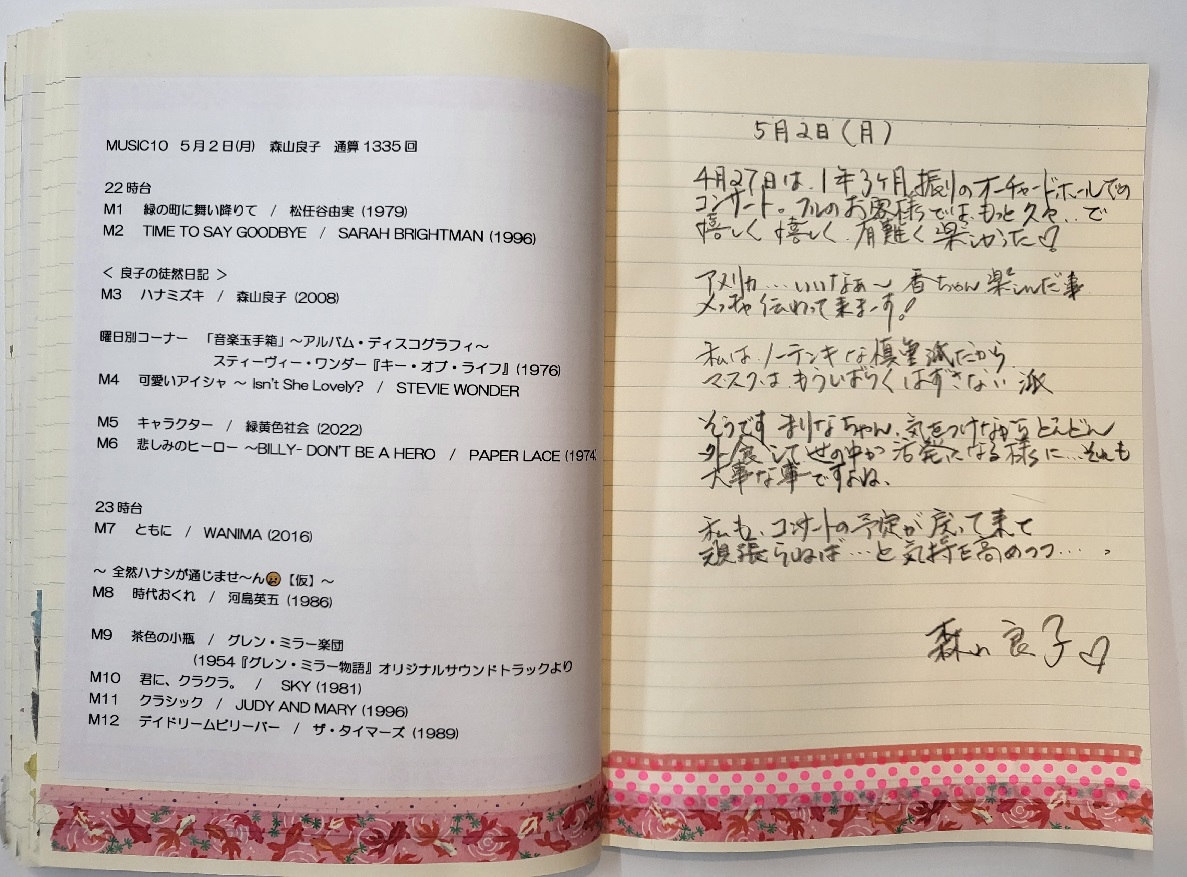 MUSIC10 5月2日(月) 森山良子 通算1335回
22時台
M1 緑の町に舞い降りて / 松任谷由実 (1979)
M2 TIME TO SAY GOODBYE / SARAH BRIGHTMAN (1996)
< 良子の徒然日記 >
M3 ハナミズキ / 森山良子 (2008)
曜日別コーナー 「音楽玉手箱」～アルバム・ディスコグラフィ～
スティーヴィー・ワンダー『キー・オブ・ライフ』(1976)
M4 可愛いアイシャ ～ Isn't She Lovely? / STEVIE WONDER
M5 キャラクター / 緑黄色社会 (2022)
M6 悲しみのヒーロー ～BILLY- DON'T BE A HERO / PAPER LACE (1974
23時台
M7 ともに / WANIMA (2016)
～ 全然ハナシが通じませ～ん😠【仮】～
M8 時代おくれ / 河島英五 (1986)
M9 茶色の小瓶 / グレン・ミラー楽団
(1954『グレン・ミラー物語』オリジナルサウンドトラックより
M10 君に、クラクラ。 / SKY (1981)
M11 クラシック / JUDY AND MARY (1996)
M12 デイドリームビリーバー / ザ・タイマーズ (1989)
5月2日(月)
4月27日は、1年3ヶ月振りのオーチャードホールでの
コンサート。フルのお客様では、もっと久々…で
嬉しく 嬉しく 有難く 楽しかった♡!
アメリカ…いいなぁ～ 香ちゃん 楽しんだ事
メッチャ伝わって来まーす!
私は、ノーテンキな慎重派だから
マスクは、もうしばらくはずさない 派
そうです まりなちゃん、気をつけながら どんどん
外食して 世の中が 活発になる様に…それも
大事な事ですよね、
私も、コンサートの予定が 戻って来て
頑張らねば…と 気持を高めつつ…。
森山良子♡